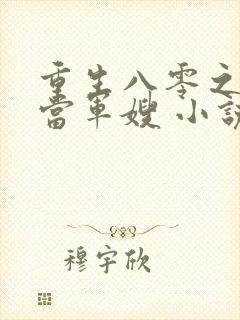 重生八零之
当军嫂 小说
穆宇欣